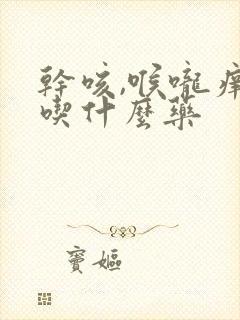 幹咳,喉嚨癢
喫什麼藥
竇嫗